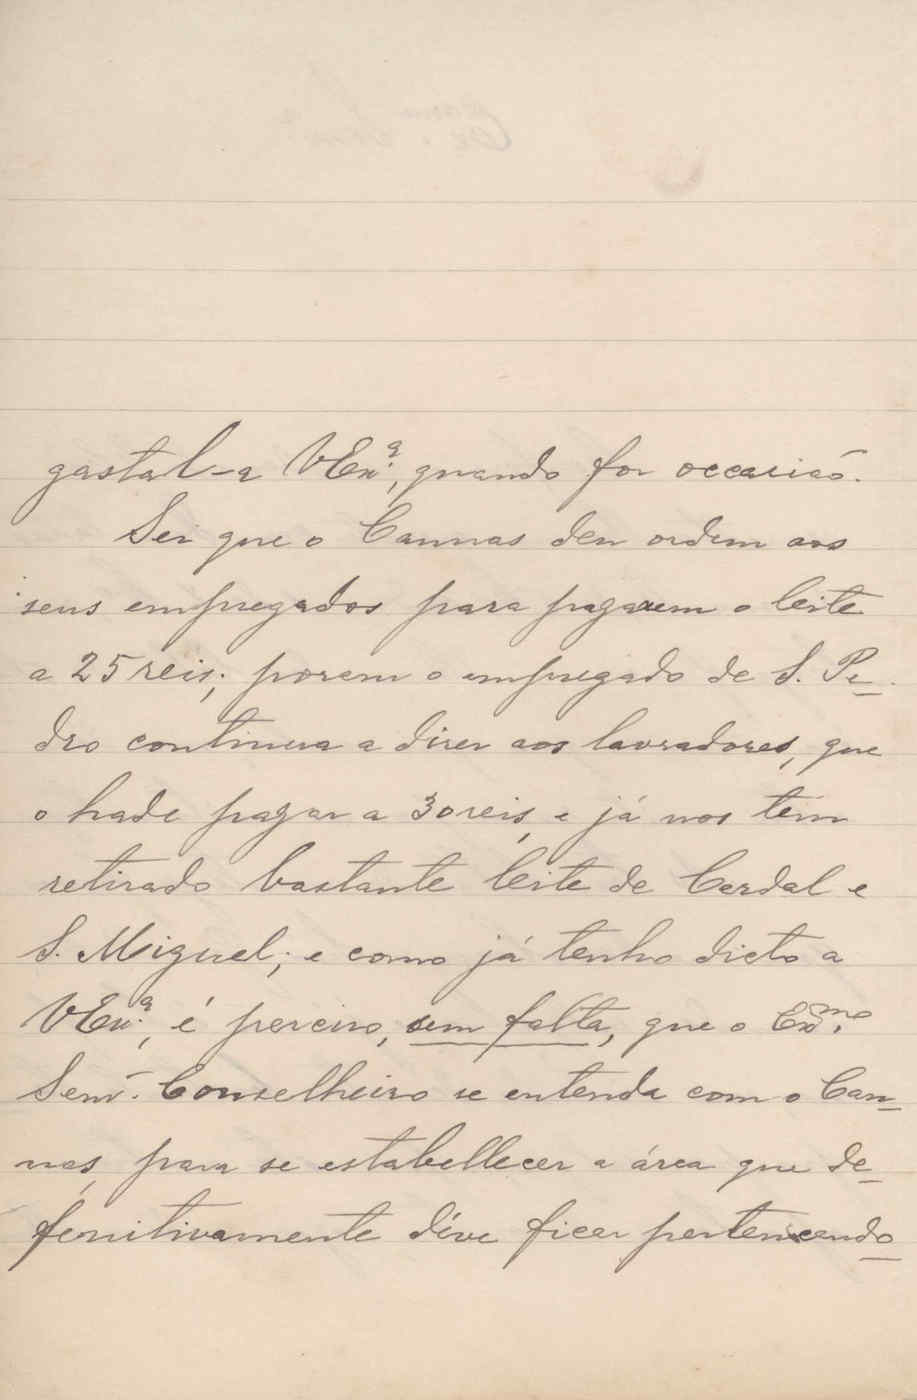 gastal-a VExª, quando for occasião.
Sei que o Cannas deu ordem aos
seus empregados para pagarem o leite
a 25 reis; porem o empregado de S. Pe-
dro continua a dizer aos lavradores, que
o hade pagar a 30 reis, e já nos tem
retirado bastante leite de Cerdal e
S. Miguel; e como já tenho dicto a
VExª, é preciso, sem falta, que o Exmo.
Senr. Conselheiro se entenda com o Can-
nas, para se estabellecer a área que de-
fenitivamente déve ficar pertencendo